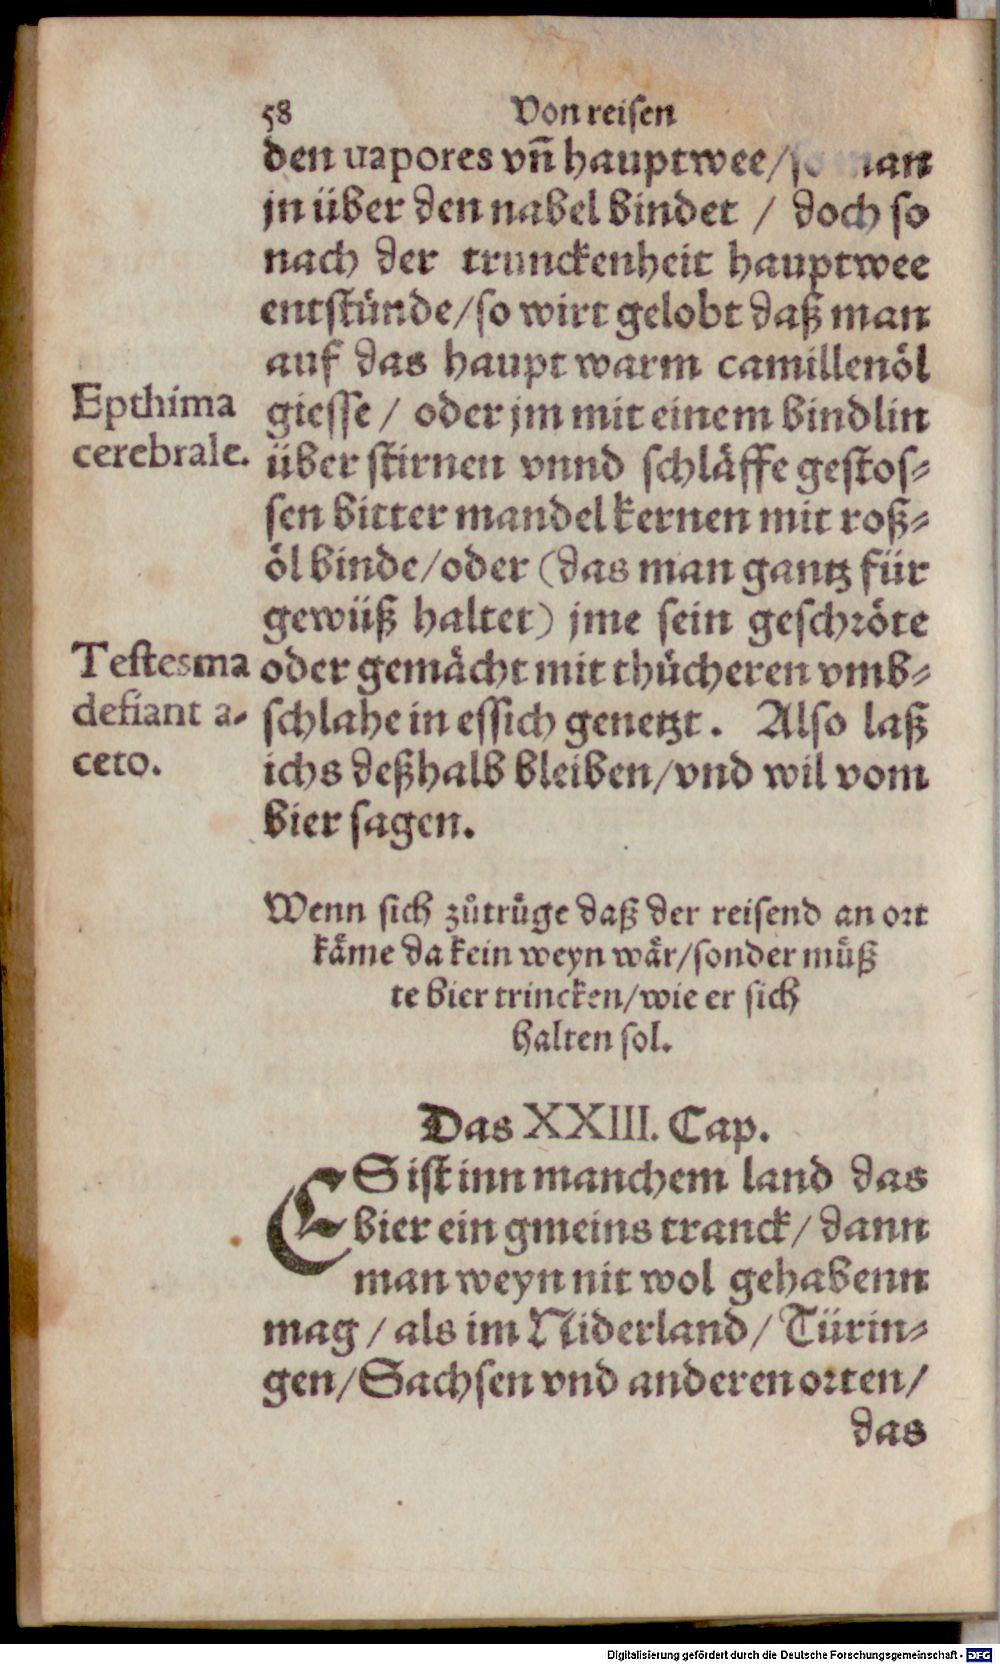 58 Von reisen
den uapores vñ hauptwee/so man
jn über den nabel bindet / doch so
nach der trunckenheit hauptwee
entstünde/so wirt gelobt daß man
auf das haupt warm camillenöl
Epthima
giesse / oder jm mit einem bindlin
cerebrale.
über stirnen vnnd schläffe gestos-
sen bitter mandel kernen mit roß-
öl binde/oder (das man gantz für
gewüß haltet) jme sein geschröte
Testes ma
oder gemächt mit thücheren vmb-
defiant a-
schlahe in essich genetzt. Also laß
ceto.
ichs deßhalb bleiben/vnd wil vom
bier sagen.
Wenn sich zůtrüge daß der reisend an ort
käme da kein weyn wär/sonder müß
te bier trincken/wie er sich
halten sol.
Das XXIII. Cap.
ES ist inn manchem land das
bier ein gmeins tranck/ dann
man weyn nit wol gehabenn
mag / als im Niderland/ Türin-
gen/Sachsen vnd anderen orten/
das
Digitalisierung gefördert durch die Deutsche Forschungsgemeinschaft - DFG